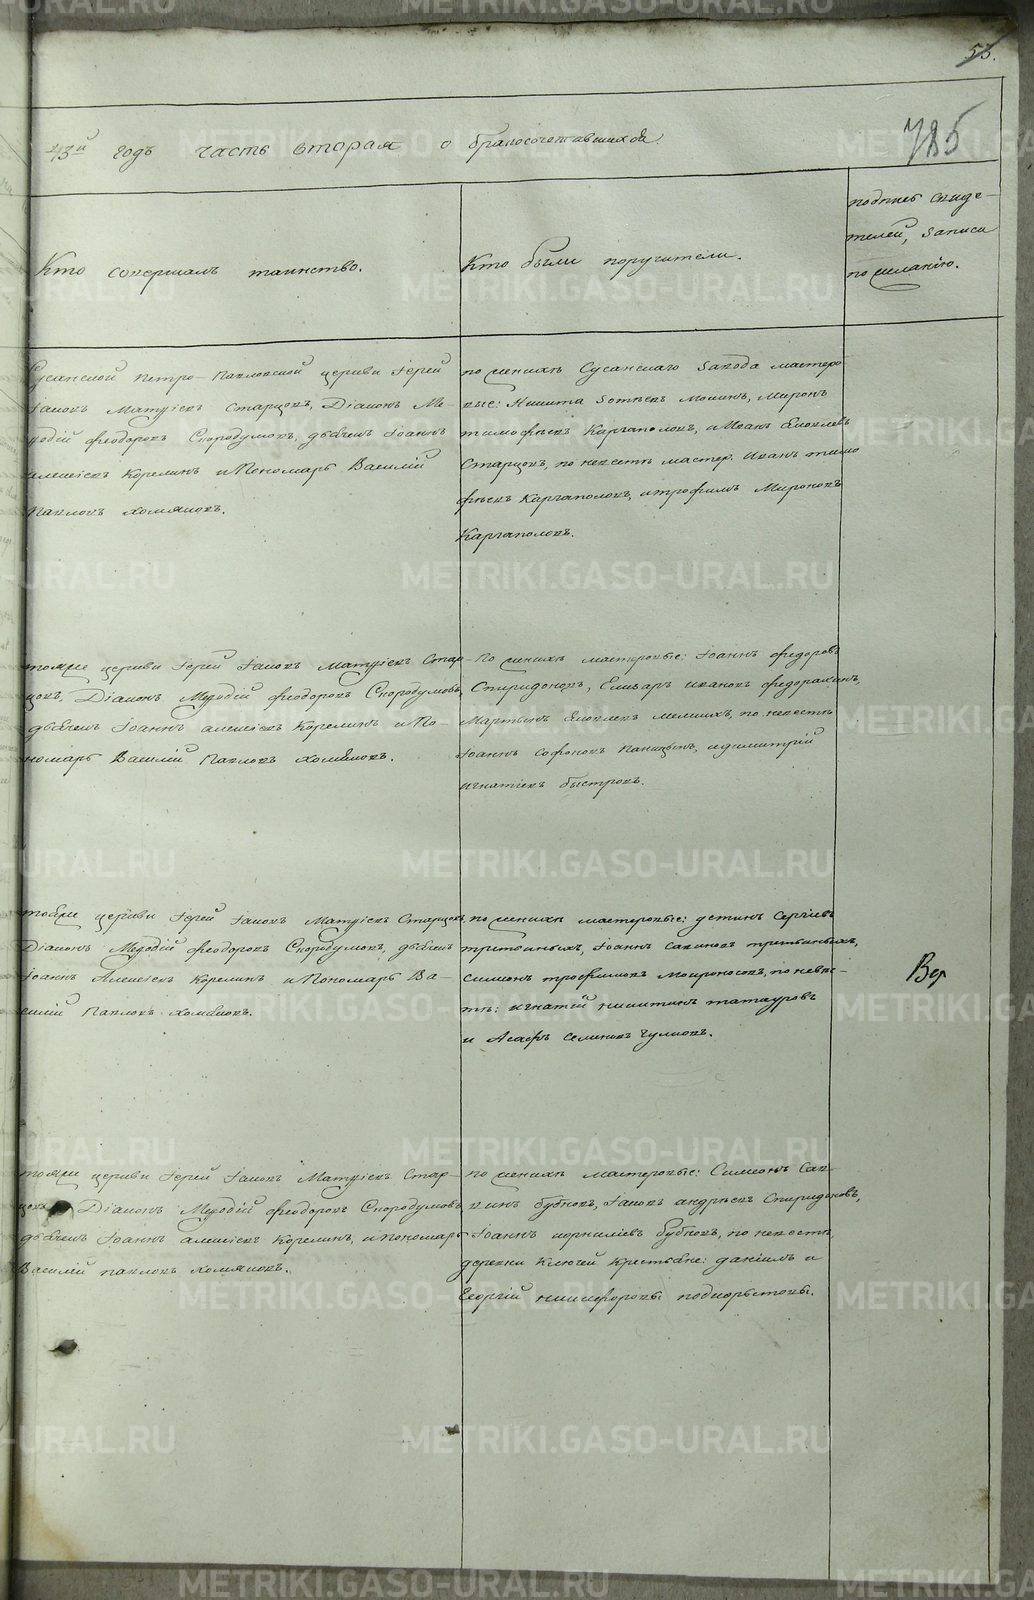 55.
785
43й годъ часть вторая о бракосочетавшихся
Кто совершалъ таинство.
Кто были поручители.
подпись свиде-
телей, записи
по желанію.
Сусанской Петро-Павловской церкви Іерей
Іаковъ Матѳіевъ Старцовъ, Діаконъ Ме-
ѳодій Феодоровъ Скородумовъ, дьячекъ Іоаннъ
Алексіевъ Корелинъ и Пономарь Василій
Павловъ Хомяковъ.
по женихѣ Сусанскаго Завода мастеро-
вые: Никита Мокинъ, Миронъ
Тимофѣевъ Каргаполовъ, и Иванъ Яковлевъ
Старцовъ, по невестѣ мастер. Иванъ Тимо
фѣевъ Каргаполовъ, и Трофимъ Мироновъ
Каргаполовъ.
тояже церкви Іерей Іаковъ Матѳіевъ Стар-
цовъ, Діаконъ Меѳодій Феодоровъ Скородумовъ,
дьячекъ Іоаннъ Алексіевъ Корелинъ и По-
номарь Василій Павловъ Хомяковъ.
По женихѣ мастеровые: Іоаннъ Федоровъ
Спиридоновъ, Елизаръ Ивановъ Федорахинъ,
Мартынъ Яковлевъ Мелкихъ, по невестѣ
Іоаннъ Софоновъ Паницынъ, и Димитрій
Игнатіевъ Быстровъ.
тояже церкви Іерей Іаковъ Матѳіевъ Старцовъ,
Діаконъ Меѳодій Феодоровъ Скородумовъ, дьячекъ
Іоаннъ Алексіевъ Корелинъ и Пономарь Ва-
силій Павловъ Хомяковъ.
по женихѣ мастеровые: Устинъ Сергіевъ
Третьиныхъ, Іоаннъ Савиновъ Третьиныхъ,
Симеонъ Трофимовъ Мокроносовъ, по невѣс-
тѣ: Игнатій Никитинъ Татауровъ
и Асафъ Семеновъ Чулковъ.
Вер
тояже церкви Іерей Іаковъ Матѳіевъ Стар-
цовъ, Діаконъ Меѳодій Феодоровъ Скородумовъ
дьячекъ Іоаннъ Алексіевъ Корелинъ, и Пономарь
Василій Павловъ Хомяковъ.
по женихѣ мастеровые: Симеонъ Сав-
винъ Бубновъ, Іаковъ Андрѣевъ Спиридоновъ,
Іоаннъ Корниліевъ Бубновъ, по невестѣ
деревни Ключей Крестьяне: Даніилъ и
Георгій Никифоровы Подкорытовы.
METRIKI.GASO-URAL.RU